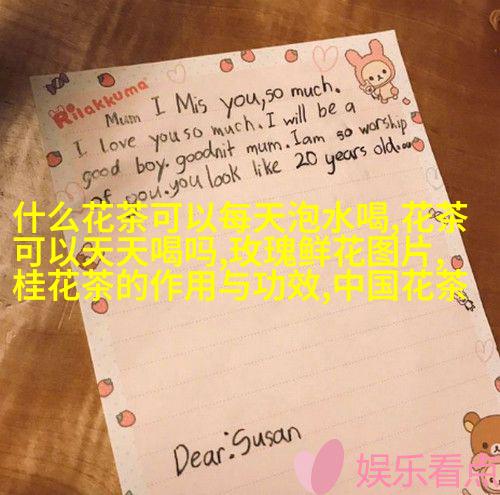 Rilakkuma
Mum I Mis you,so much.
I love you so much. I will be a
good boy. goodnit mum. I am so worship
of you. you look like 20 years old.
什么花茶可以每天泡水喝,花茶
可以天天喝吗,玫瑰鲜花图片,
桂花茶的作用与功效,中国花茶
Dear:Susan
娱乐看点